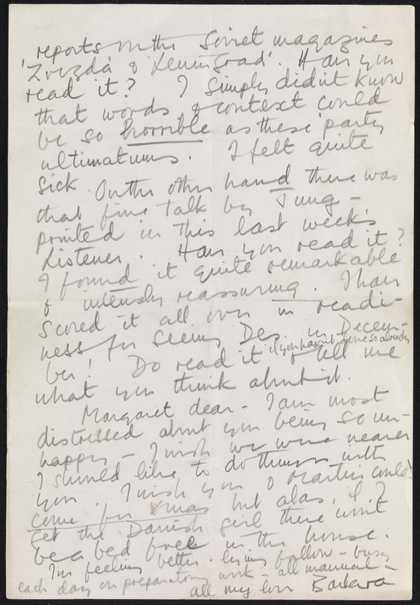 reports on the Soviet magazines
'Zvezda & Leningrad'. Have you
read it? I simply didn't know
that words & context could
be so horrible as these party
ultimatums. I felt quite
sick. On the other hand there was
that fine Talk by Jung -
printed in this last week's
Listener. Have you read it?
I found it quite remarkable
& intensely reassuring. I have
scored it all over in readi-
ness for seeing Des. in Decem-
ber! Do read it if you haven't done so already & tell me
what you think about it.
Margaret dear - I am most
distressed about you being so un-
happy - I wish we were nearer
I should like to do things with
you. I wish you & Martin could
come for Xmas but alas, if I
get the Danish girl there won't
be a bed free in the house.
I'm feeling better. lying fallow - busy
each day on preparatory work - all manual -
all my love Barbara